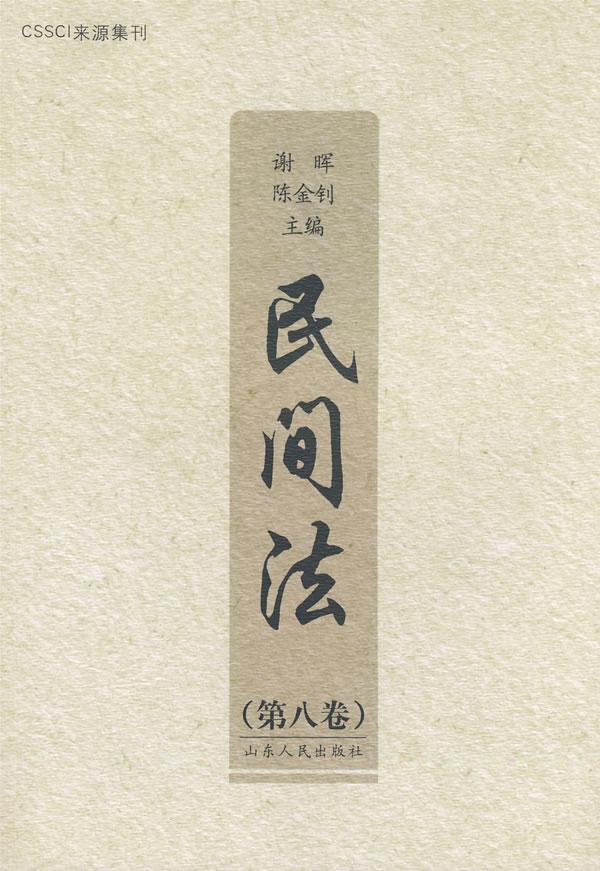 CSSCI来源集刊
谢 晖
陈金钊
主编
民
间
法
（第八卷）
山东人民出版社